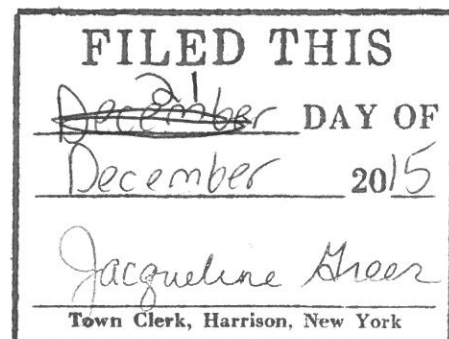 FILED THIS
21
December DAY OF
December 2015
Jacqueline Greer
Town Clerk, Harrison, New York